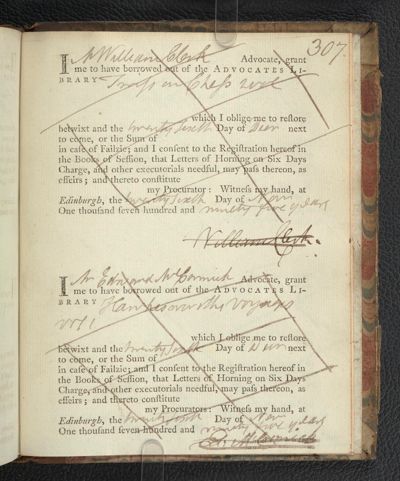 307.
I Mr William Clerk Advocate, grant
me to have borrowed out of the ADVOCATES LI-
BRARY Twiss on Chess 2 vol
which I oblige me to reſtore
betwixt and the twenty sixth Day of Decr next
to come, or the Sum of
in caſe of Failzie; and I conſent to the Regiſtration hereof in
the Books of Seſſion, that Letters of Horning on Six Days
Charge, and other executorials needful, may paſs thereon, as
effeirs; and thereto conſtitute
my Procurator: Witneſs my hand, at
Edinburgh, the twenty sixth Day of Novr
One thouſand ſeven hundred and ninety five years
William Clerk.
I Mr Edward McCormick Advocate, grant
me to have borrowed out of the ADVOCATES LI-
BRARY Hawkesworths Voyages
vol 1
which I oblige me to reſtore
betwixt and the twenty sixth Day of Decr next
to come, or the Sum of
in caſe of Failzie; and I conſent to the Regiſtration hereof in
the Books of Seſſion, that Letters of Horning on Six Days
Charge, and other executorials needful, may paſs thereon, as
effeirs; and thereto conſtitute
my Procurators: Witneſs my hand, at
Edinburgh, the twenty sixth Day of Novr
One thouſand ſeven hundred and ninety five years
Ed. McCormick